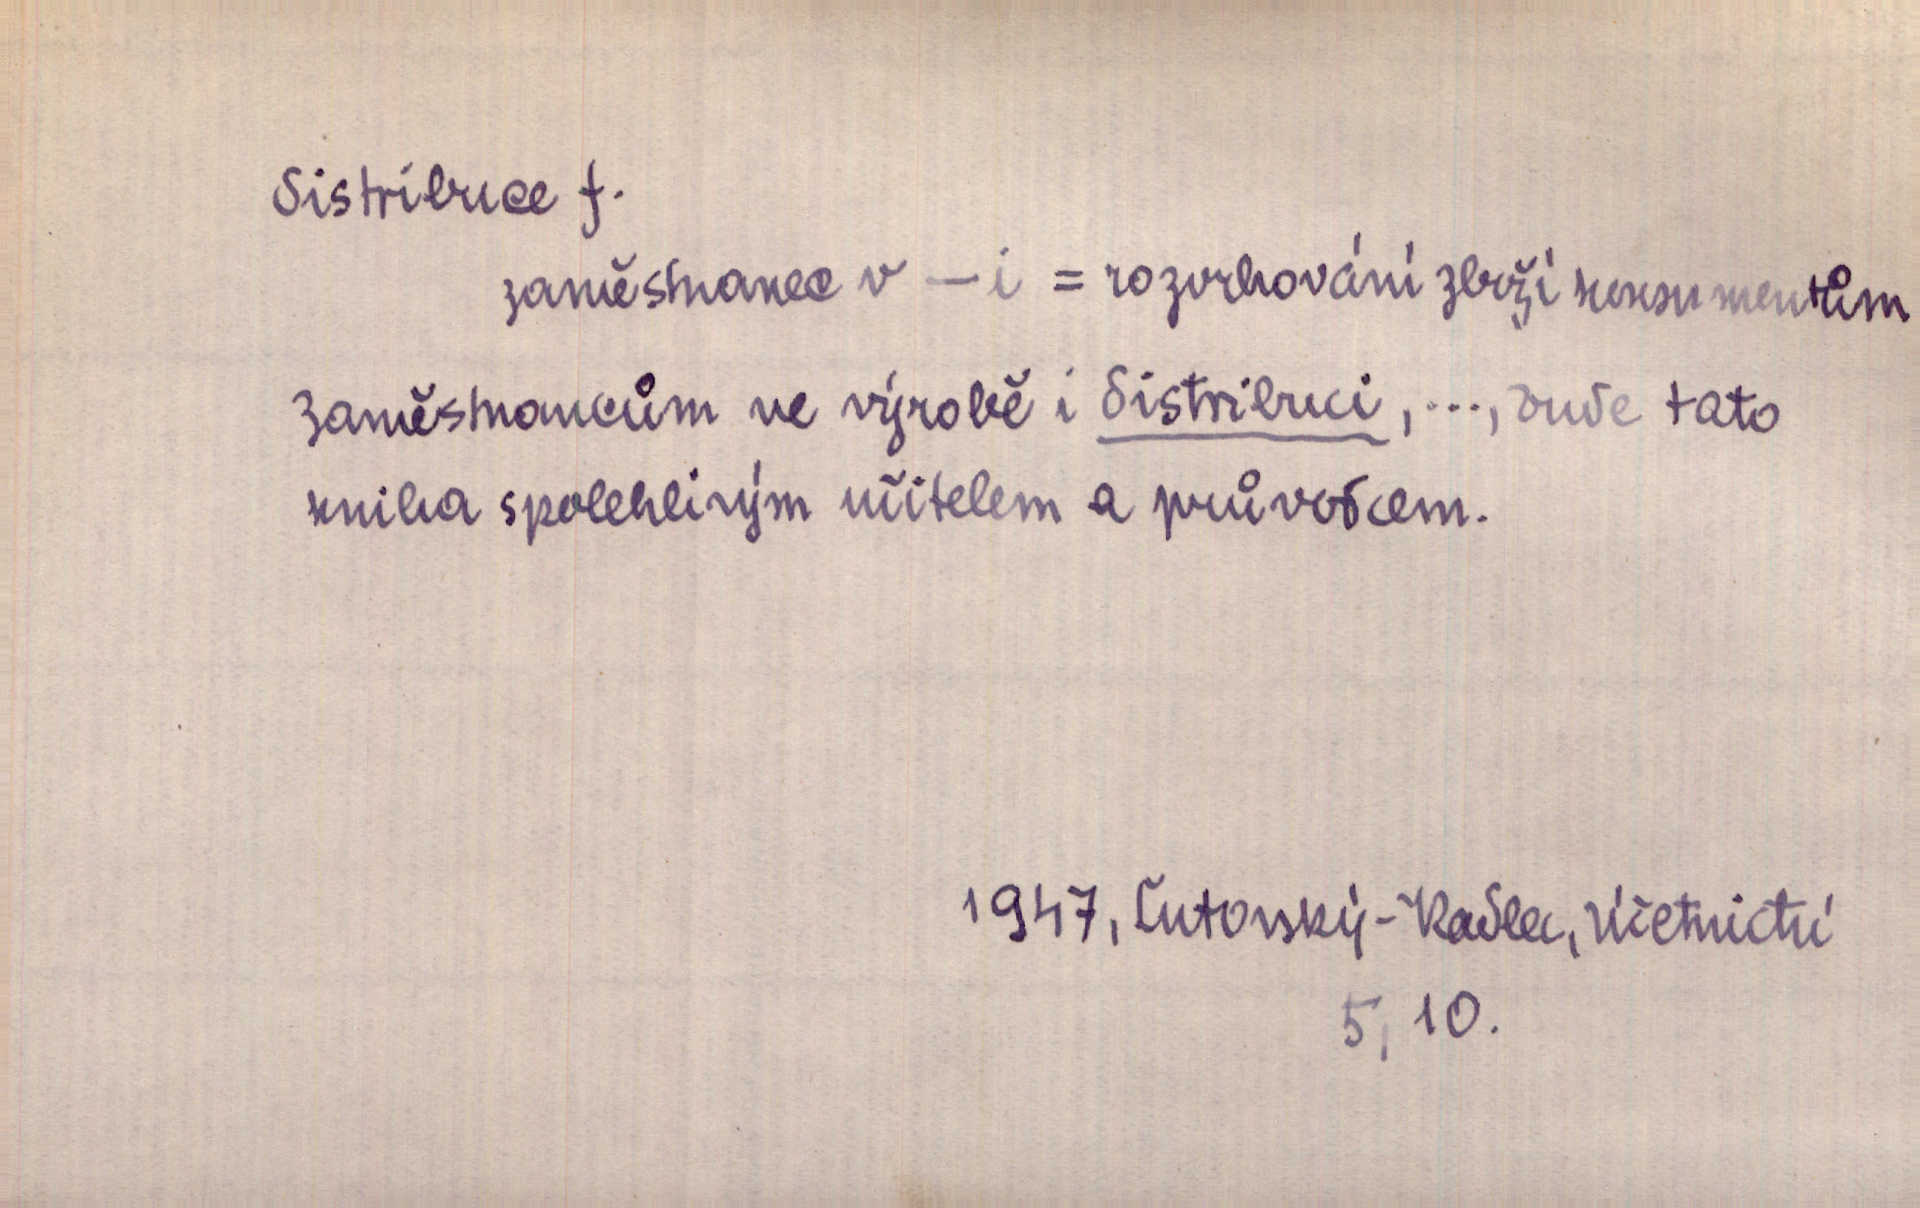 distribuce f.
zaměstnanec v – i = rozvrhování zboží konsumentům
zaměstnancům ve výrobě i distribuci, ..., bude tato
kniha spolehlivým učitelem a průvodcem.
1947, Lutovský-Kadlec, Účetnictví
5, 10.